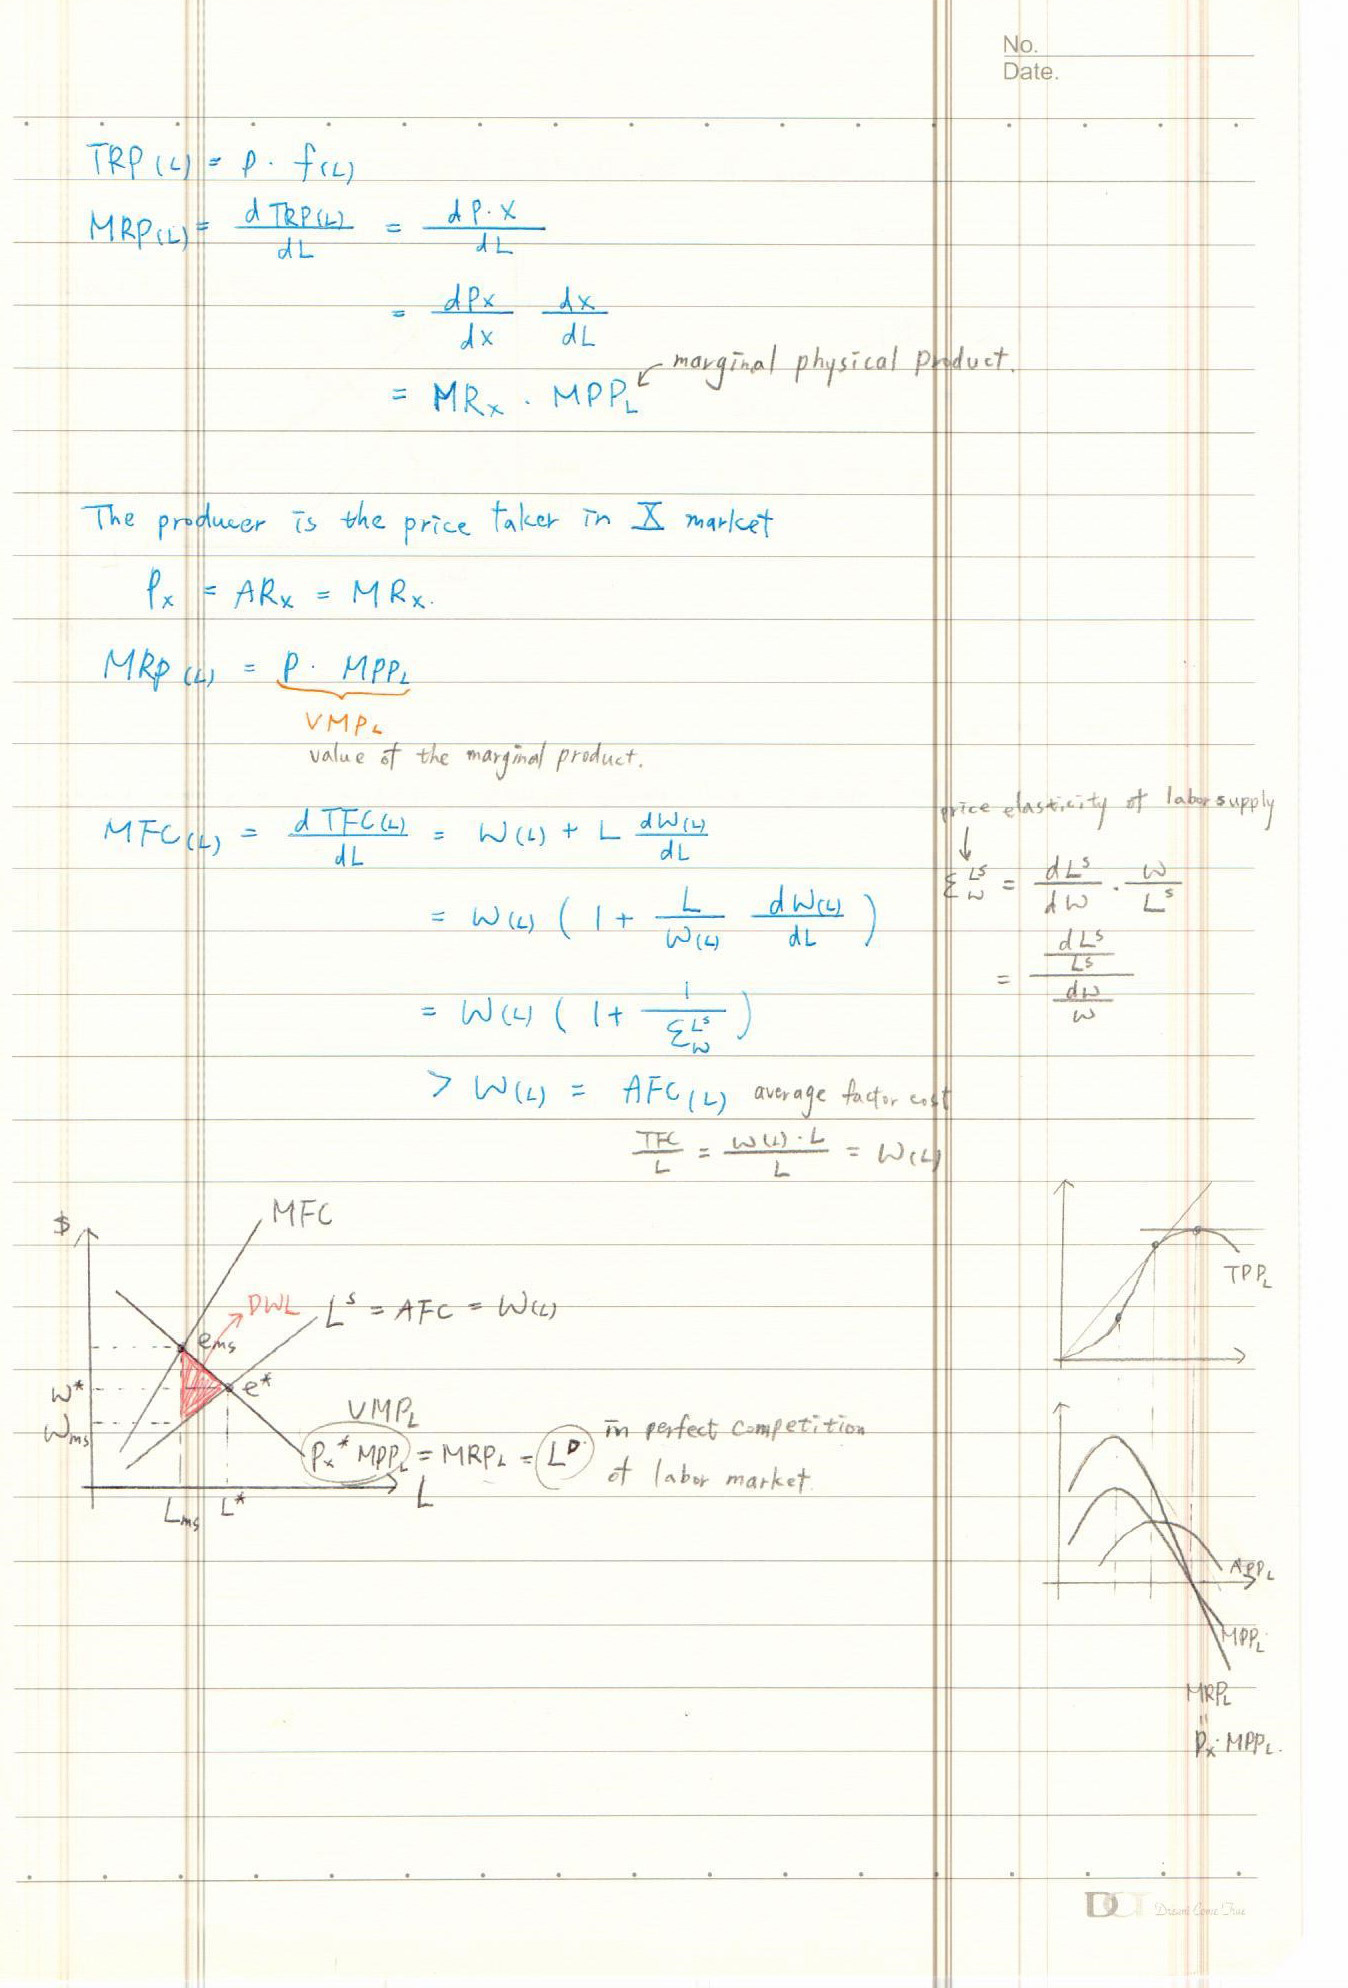 No.
Date.
TRP(L) = P · f(L)
MRP(L) = d TRP(L) / dL = d P·X / dL
= dPx / dx dx / dL
= MRx · MPP_L marginal physical product.
The producer is the price taker in X market
Px = ARx = MRx.
MRP(L) = P · MPP_L
VMP_L
value of the marginal product.
MFC(L) = d TFC(L) / dL = W(L) + L dW(L) / dL
= W(L) ( 1 + L / W(L) dW(L) / dL )
= W(L) ( 1 + 1 / Σ_W^LS )
> W(L) = AFC(L) average factor cost
TFC / L = W(L)·L / L = W(L)
price elasticity of labor supply
Σ_W^LS = dL^S / dW · W / L^S
= dL^S / L^S / dW / W
$
MFC
DWL
L^S = AFC = W(L)
e_ms
e*
W*
W_ms
VMP_L
Px* MPP_L = MRP_L = L^D in perfect competition
of labor market.
L
L_ms L*
TPP_L
APP_L
MPP_L
MRP_L
=
Px·MPP_L.
DCT Dream Come True